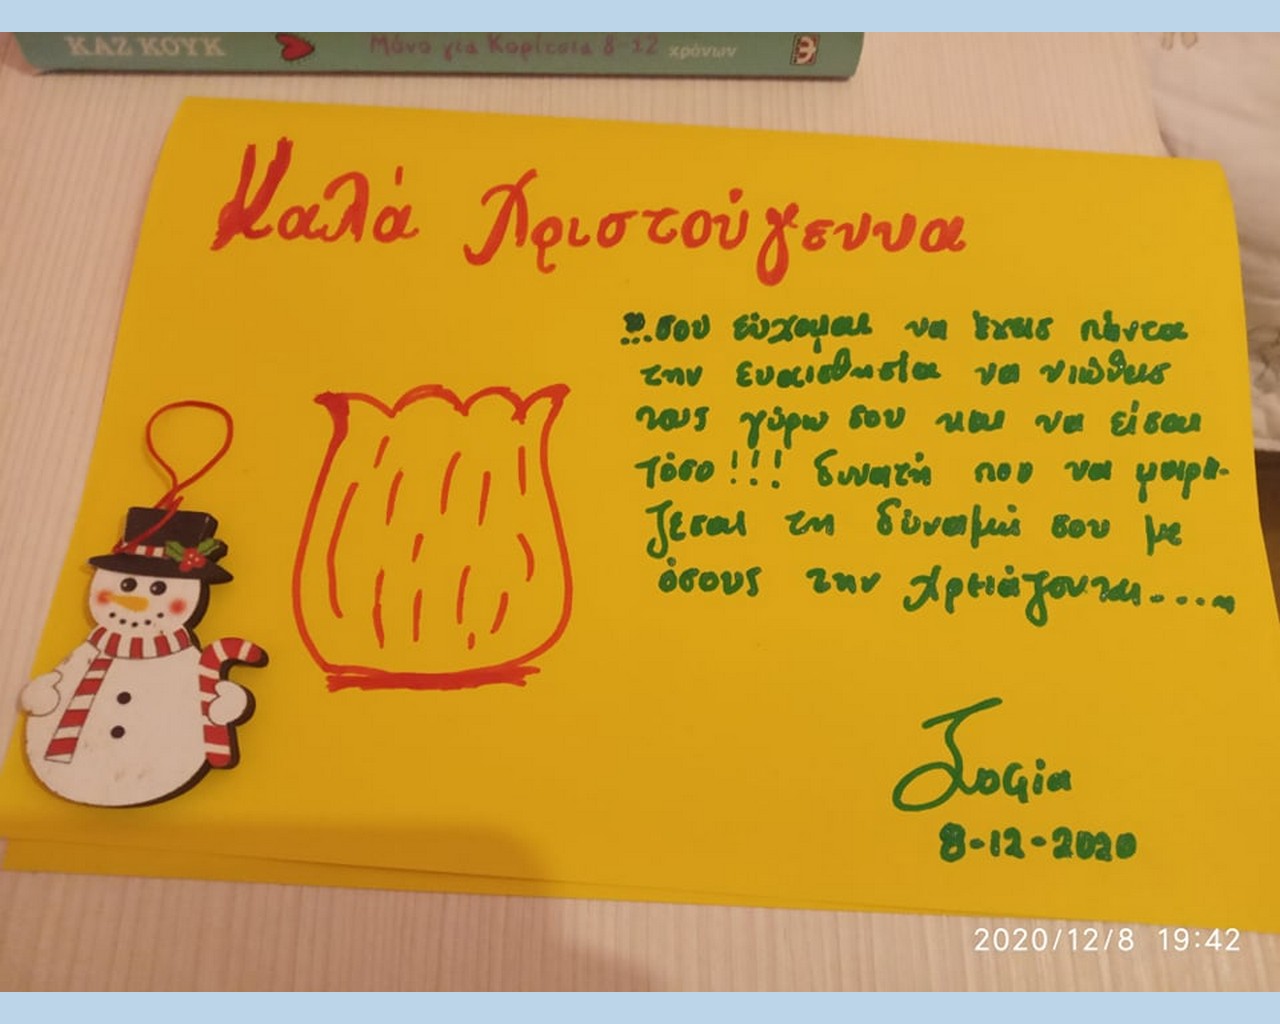 ΚΑΖ ΚΟΥΚ Μόνο για Κορίτσια 8-12 χρόνων
Καλά Χριστούγεννα
...σου εύχομαι να έχεις πάντα
την ευαισθησία να νιώθεις
τους γύρω σου και να είσαι
τόσο!!! δυνατή που να μοιρά-
ζεσαι τη δύναμή σου με
όσους την χρειάζονται....
Σοφία
8-12-2020
2020/12/8 19:42